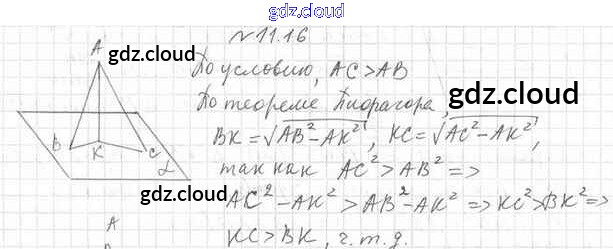 gdz.cloud
№11.16
A
gdz.cloud
По условию, AC>AB
По теореме Пифагора,
gdz.cloud
BK=√AB²-AK², KC=√AC²-AK²,
B
K
C
α
так как AC²>AB² =>
gdz.cloud
AC²-AK²>AB²-AK² => KC²>BK² =>
A
KC>BK, ч.т.д.